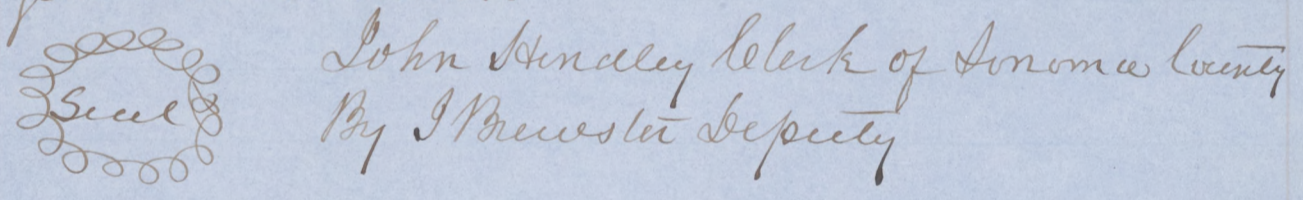 John Hendley Clerk of Sonoma County
Seal
By J Brewster Deputy